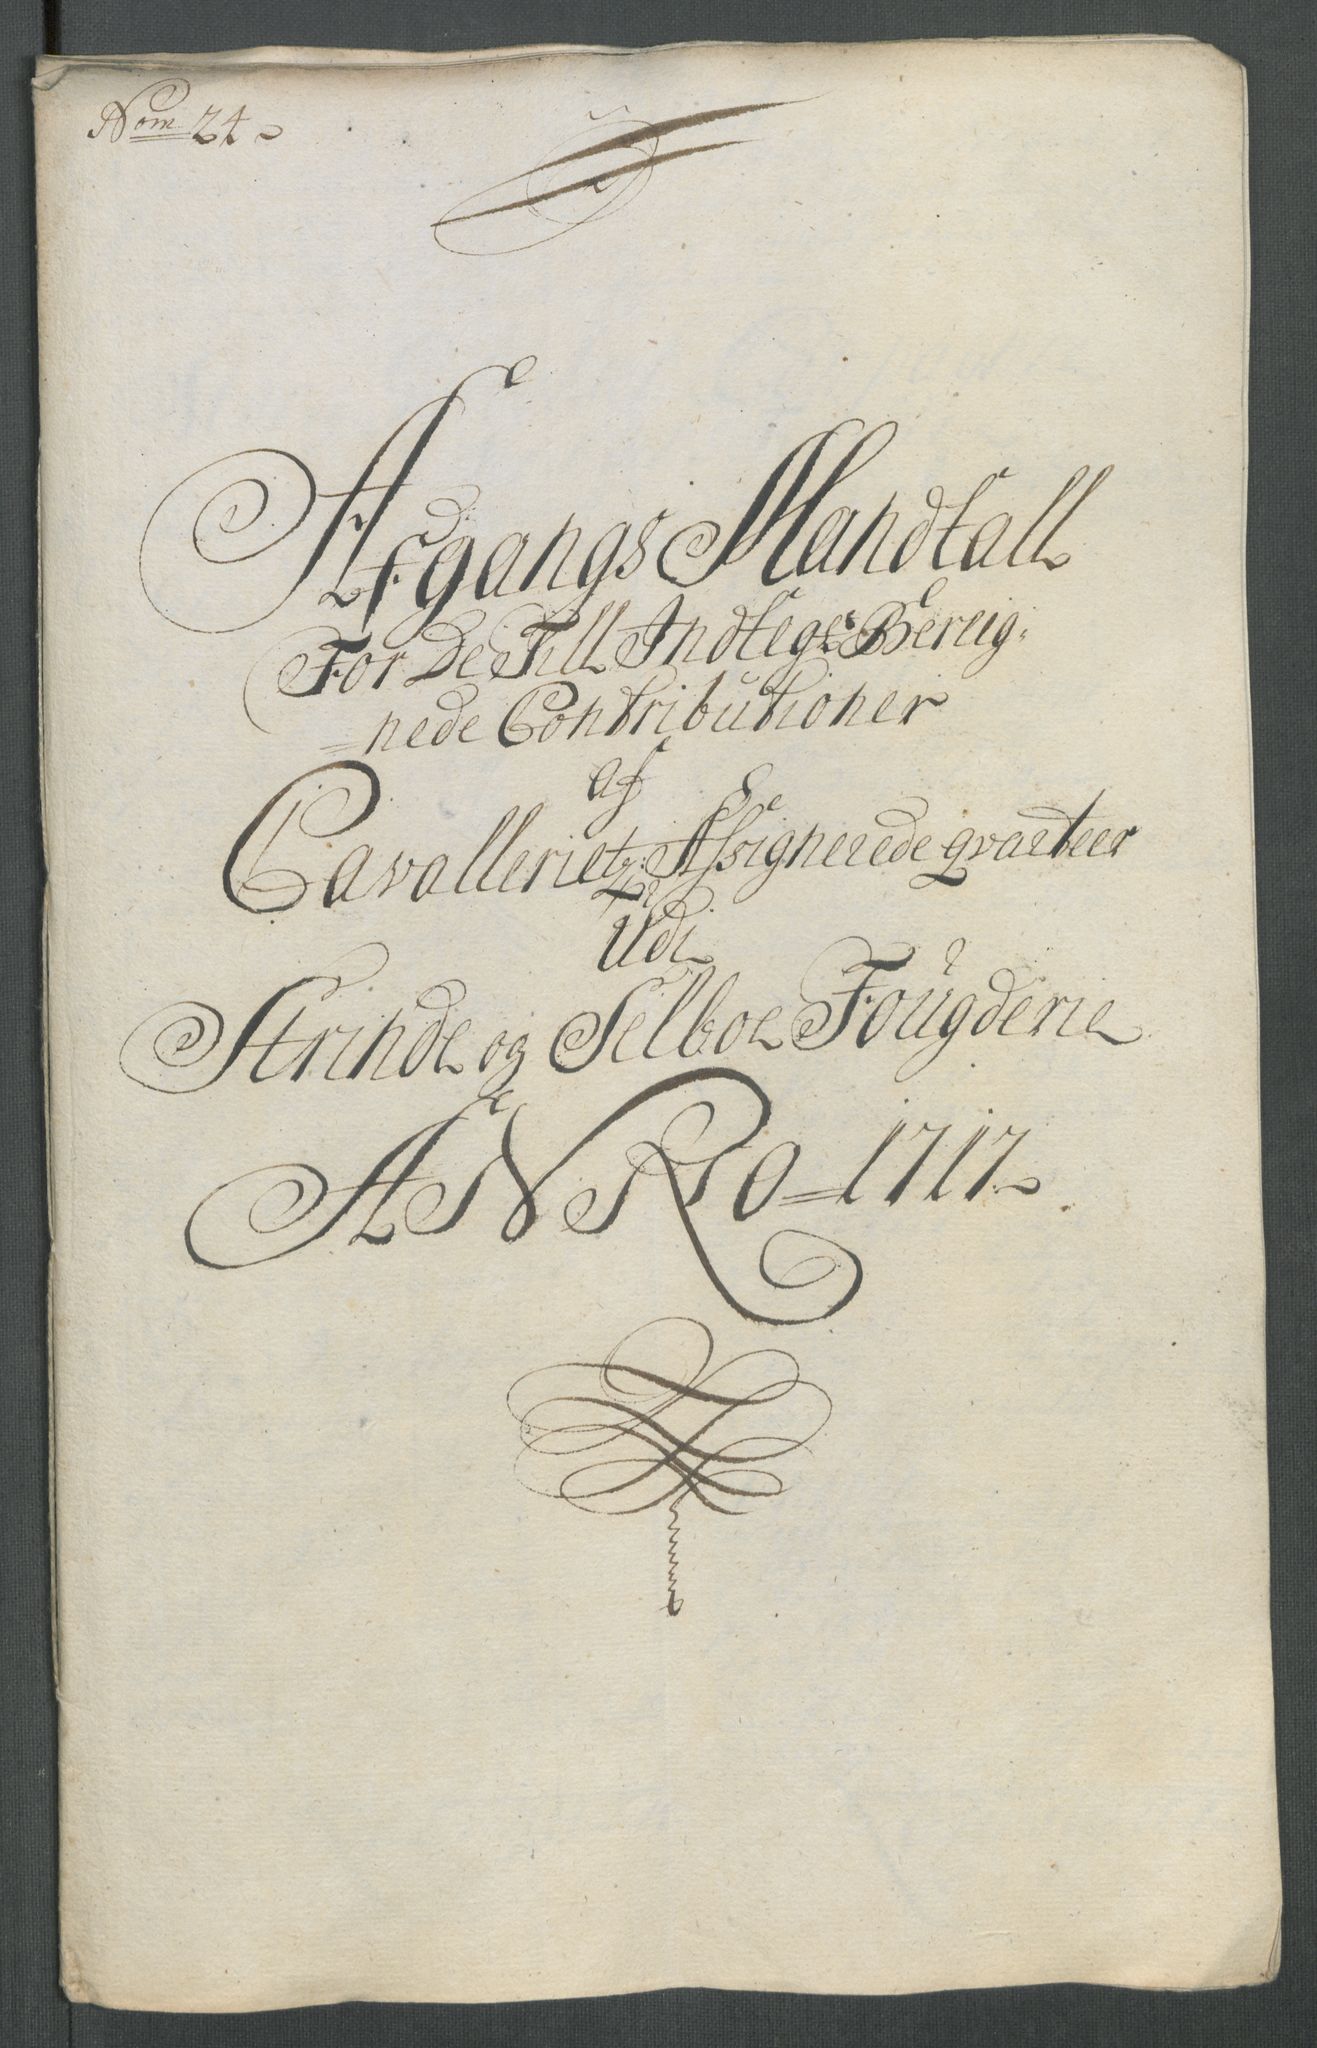 Nom 24
Afgangs Mandtall
For De Till Indtegt Bereig-
=nede Contributioner
af
Cavalleriets Assignerede qvarteer
Udi
Strinde og Selboe Foügderie
ANNO = 1717